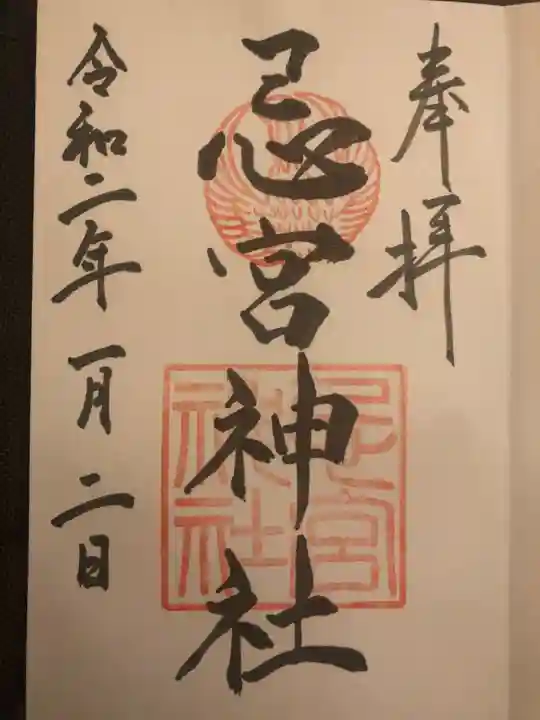 奉拝
忌宮神社
忌宮
神社
令和二年一月二日